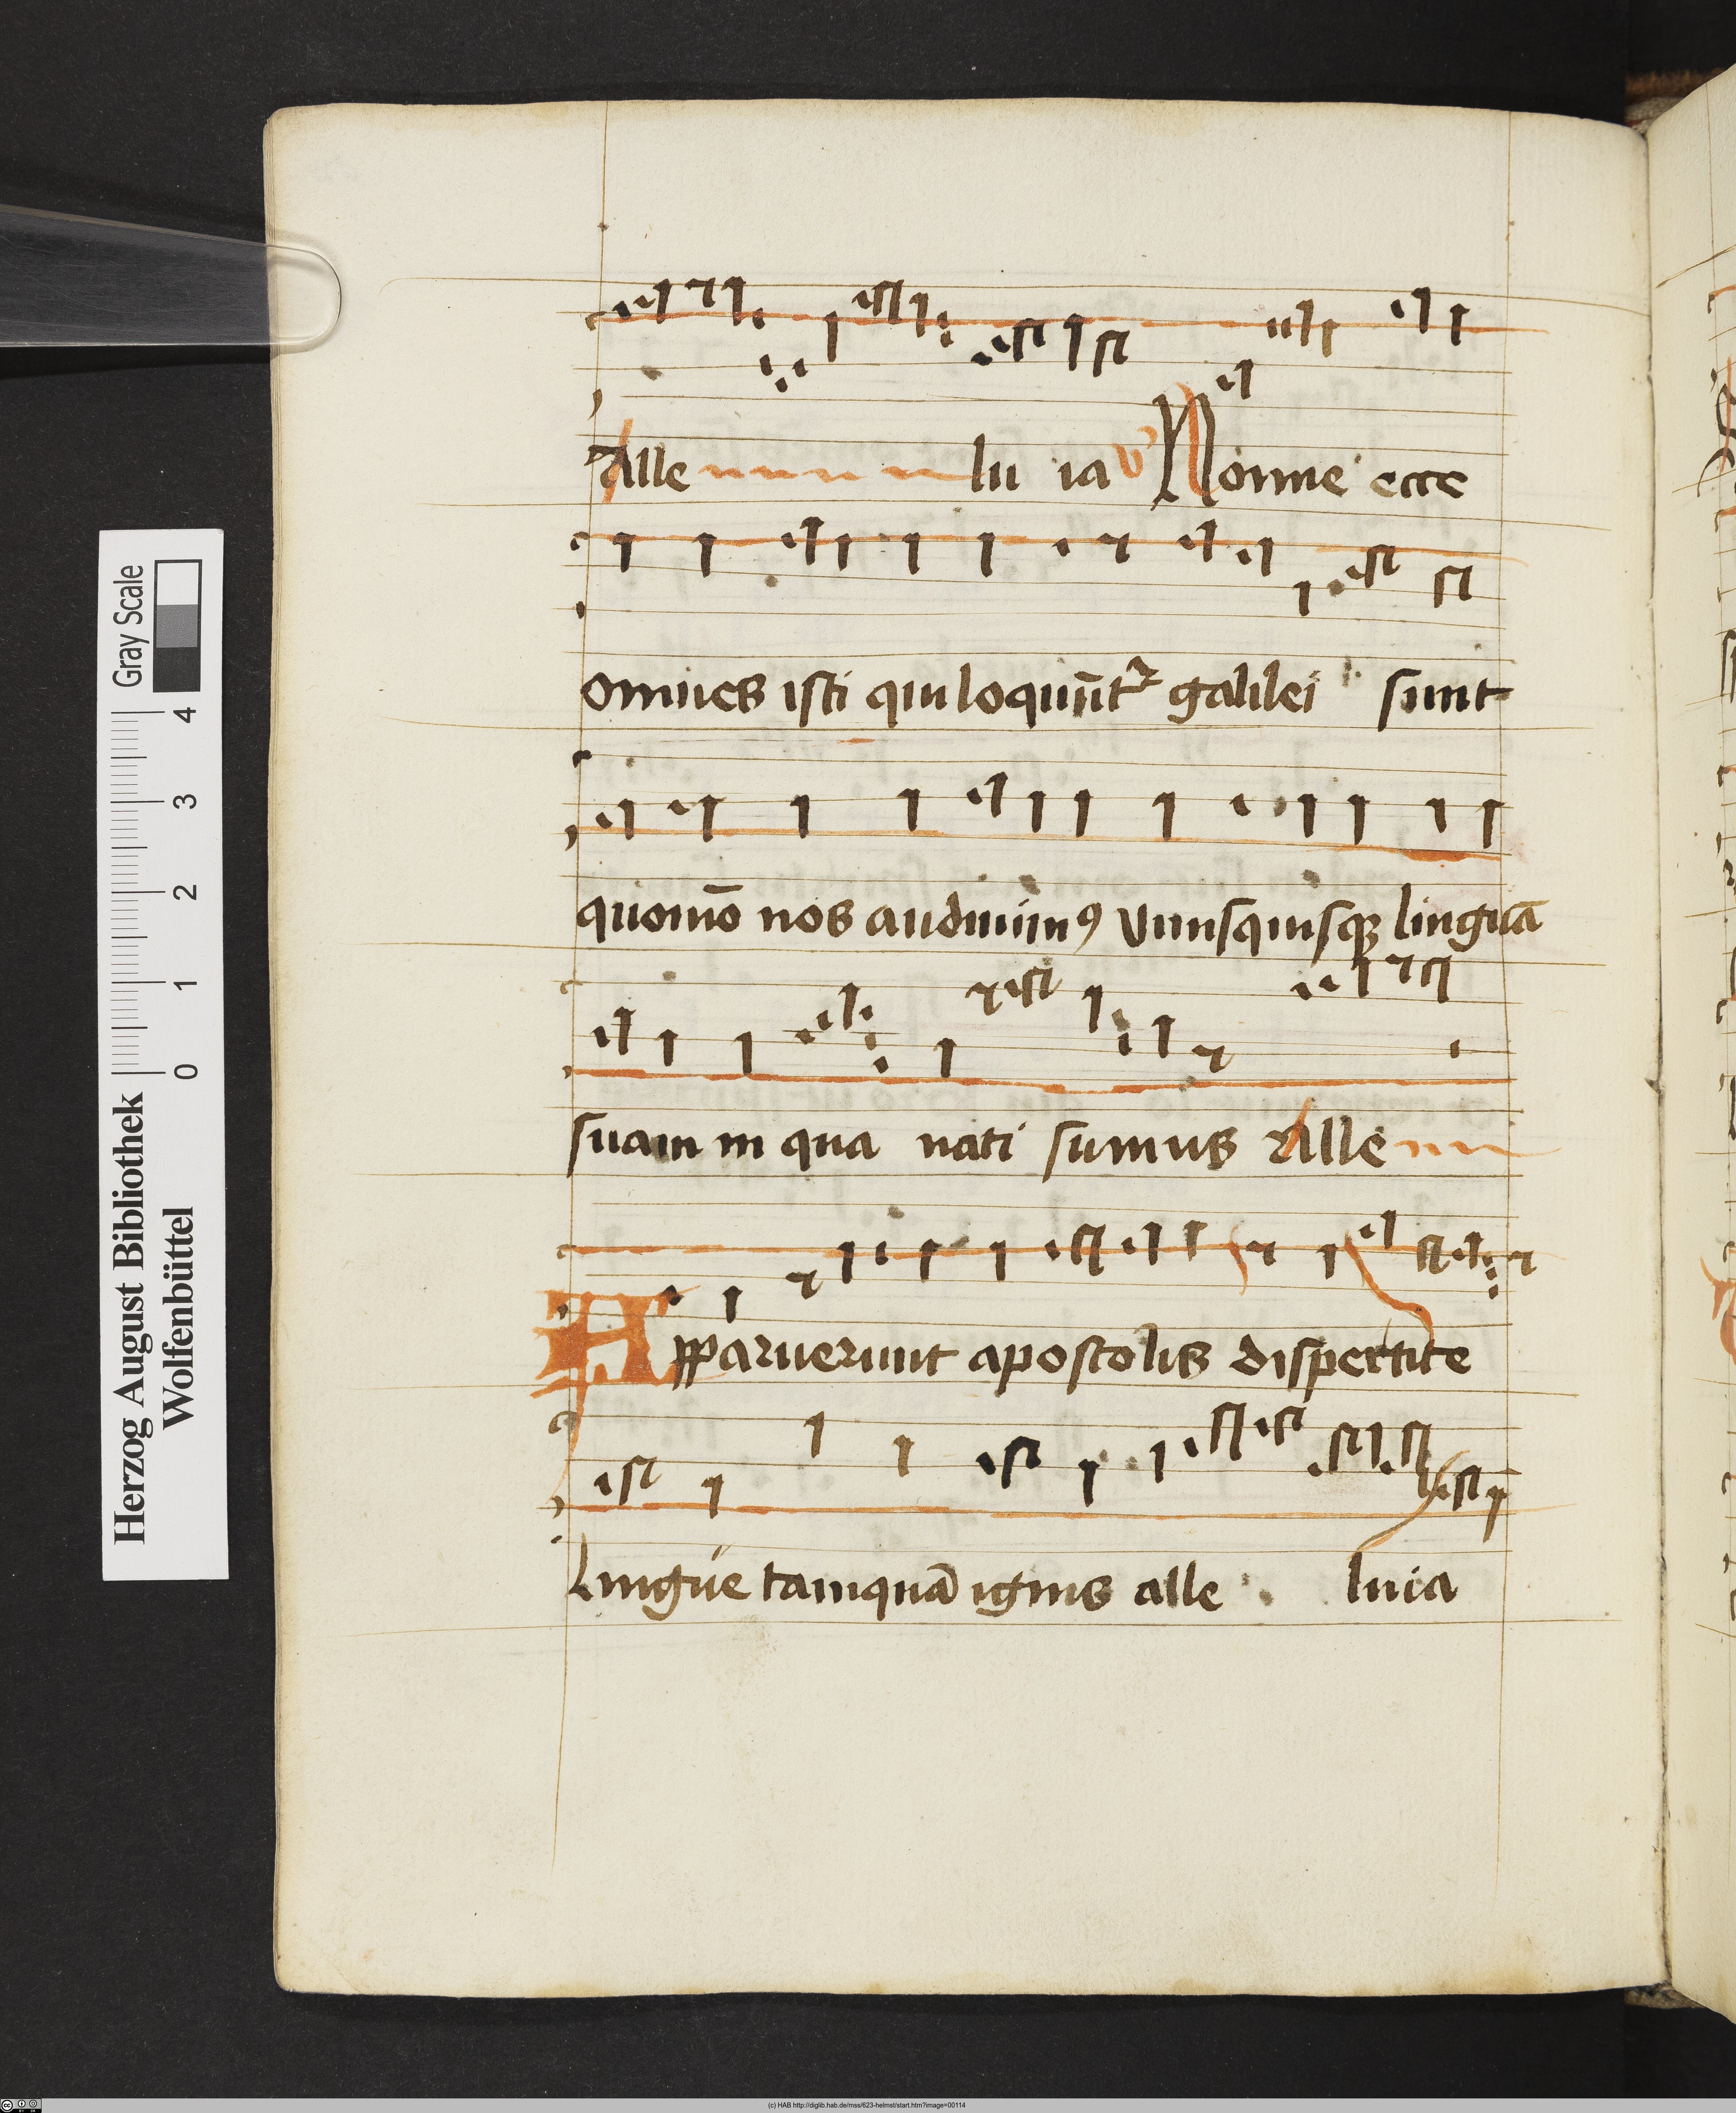 Alle lu ia v Nonne ecce
omnes isti qui loquūt᷑ galilei sunt
quomō nos audiuimꝯ vnusquisqꝫ linguā
suam in qua nati sumus Alle
Apparuerunt apostolis dispertite
Lingue tamquā ignis alle luia
Gray Scale
4
3
2
1
0
Herzog August Bibliothek
Wolfenbüttel
(c) HAB http://diglib.hab.de/mss/623-helmst/start.htm?image=00114